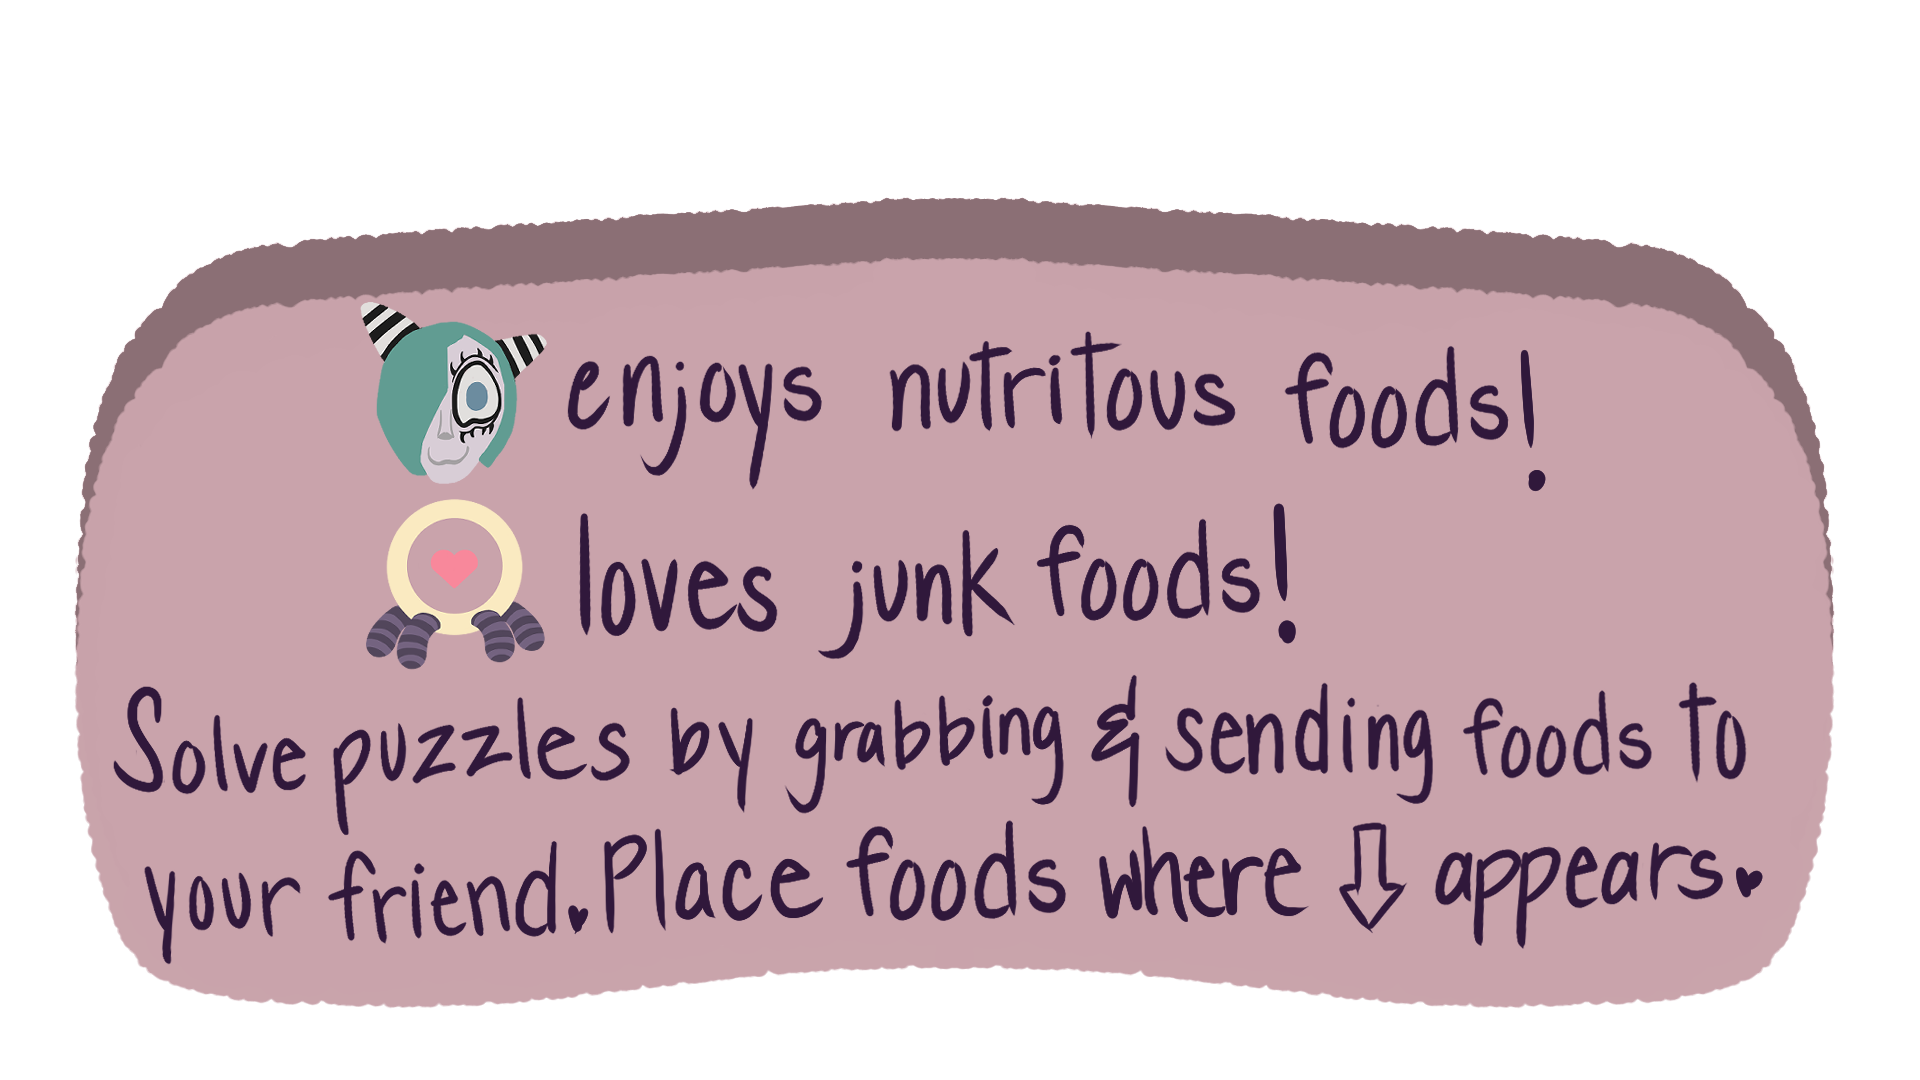 enjoys nutritous foods!
loves junk foods!
Solve puzzles by grabbing & sending foods to
your friend. Place foods where appears.